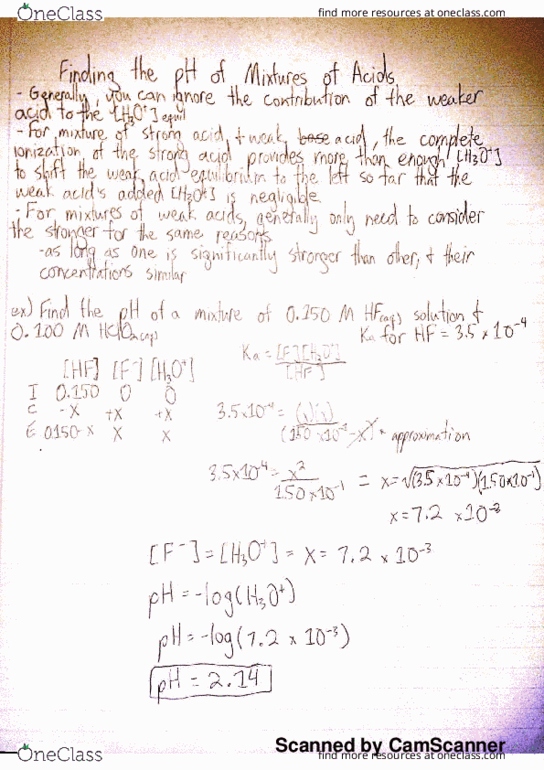 OneClass
find more resources at oneclass.com
Finding the pH of Mixtures of Acids
- Generally, you can ignore the contribution of the weaker
acid to the [H3O+] equil
- For mixture of strong acid, + weak base acid, the complete
ionization of the strong acid provides more than enough [H3O+]
to shift the weak acid equilibrium to the left so far that the
weak acid's added [H3O+] is negligible
- For mixtures of weak acids, generally only need to consider
the stronger for the same reasons
- as long as one is significantly stronger than other, + their
concentrations similar
ex) Find the pH of a mixture of 0.150 M HF(aq) solution +
0.100 M HClO(aq) Ka for HF = 3.5 x 10-4
Ka = [F-][H3O+]
[HF]
[HF] [F-] [H3O+]
I 0.150 0 0
C -x +x +x
E 0.150-x x x
3.5x10-4 = (x)(x)
(1.50 x10-1 - x) approximation
3.5x10-4 = x2 = x=√(3.5 x10-4)(1.50x10-1)
1.50 x10-1
x=7.2 x10-3
[F-] = [H3O+] = x = 7.2 x 10-3
pH = -log(H3O+)
pH = -log(7.2 x 10-3)
pH = 2.14
Scanned by CamScanner
OneClass
find more resources at oneclass.com